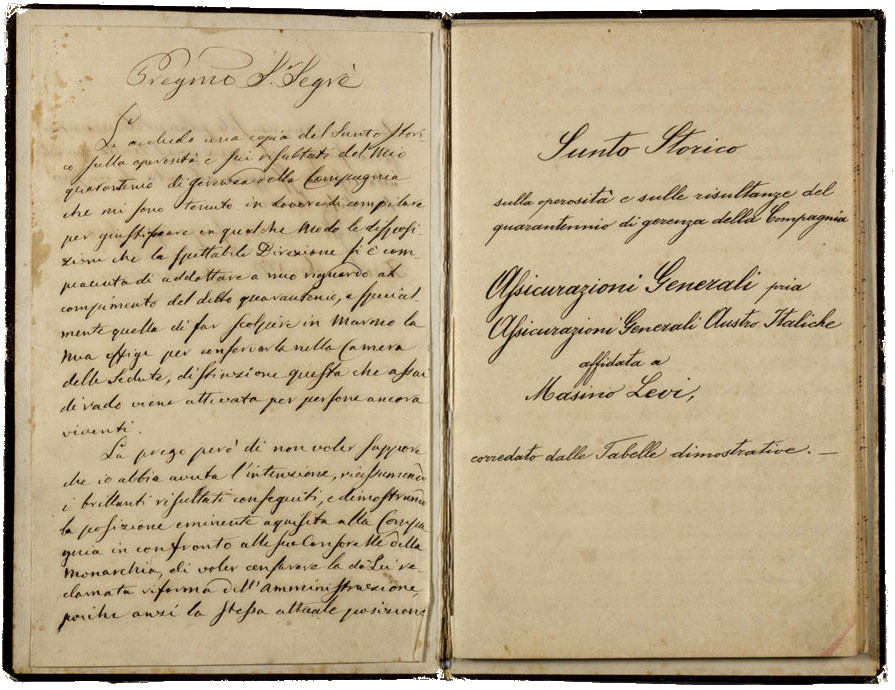 Pregmo Sr. Segrè
Le accludo una copia del Sunto Stori
co sulla operosità e sui risultati del mio
quarantenio di gerenza della Compagnia
che mi sono tenuto in dovere di compilare
per giustificare in qualche modo le disposi
zioni che la spettabile Direzione si è com
piaciuta di addottare a mio riguardo al
compimento del detto quarantenio, e special
mente quella di far scolpire in marmo la
mia effige per conservarla nella Camera
delle Sedute, distinzione questa che assai
di rado viene attivata per persone ancora
viventi.
La prego però di non voler supporre
che io abbia avuta l'intenzione, riassumendo
i brillanti risultati conseguiti, e dimostrando
la posizione eminente aquisita alla Compa
gnia in confronto alle sue Consorelle della
Monarchia, di voler censurare la da Lei re
clamata riforma dell'Amministrazione,
poiche anzi la stessa attuale posizione
Sunto Storico
sulla operosità e sulle risultanze del
quarantennio di gerenza della Compagnia
Assicurazioni Generali pria
Assicurazioni Generali Austro Italiche
affidata a
Masino Levi,
corredato dalle Tabelle dimostrative. —